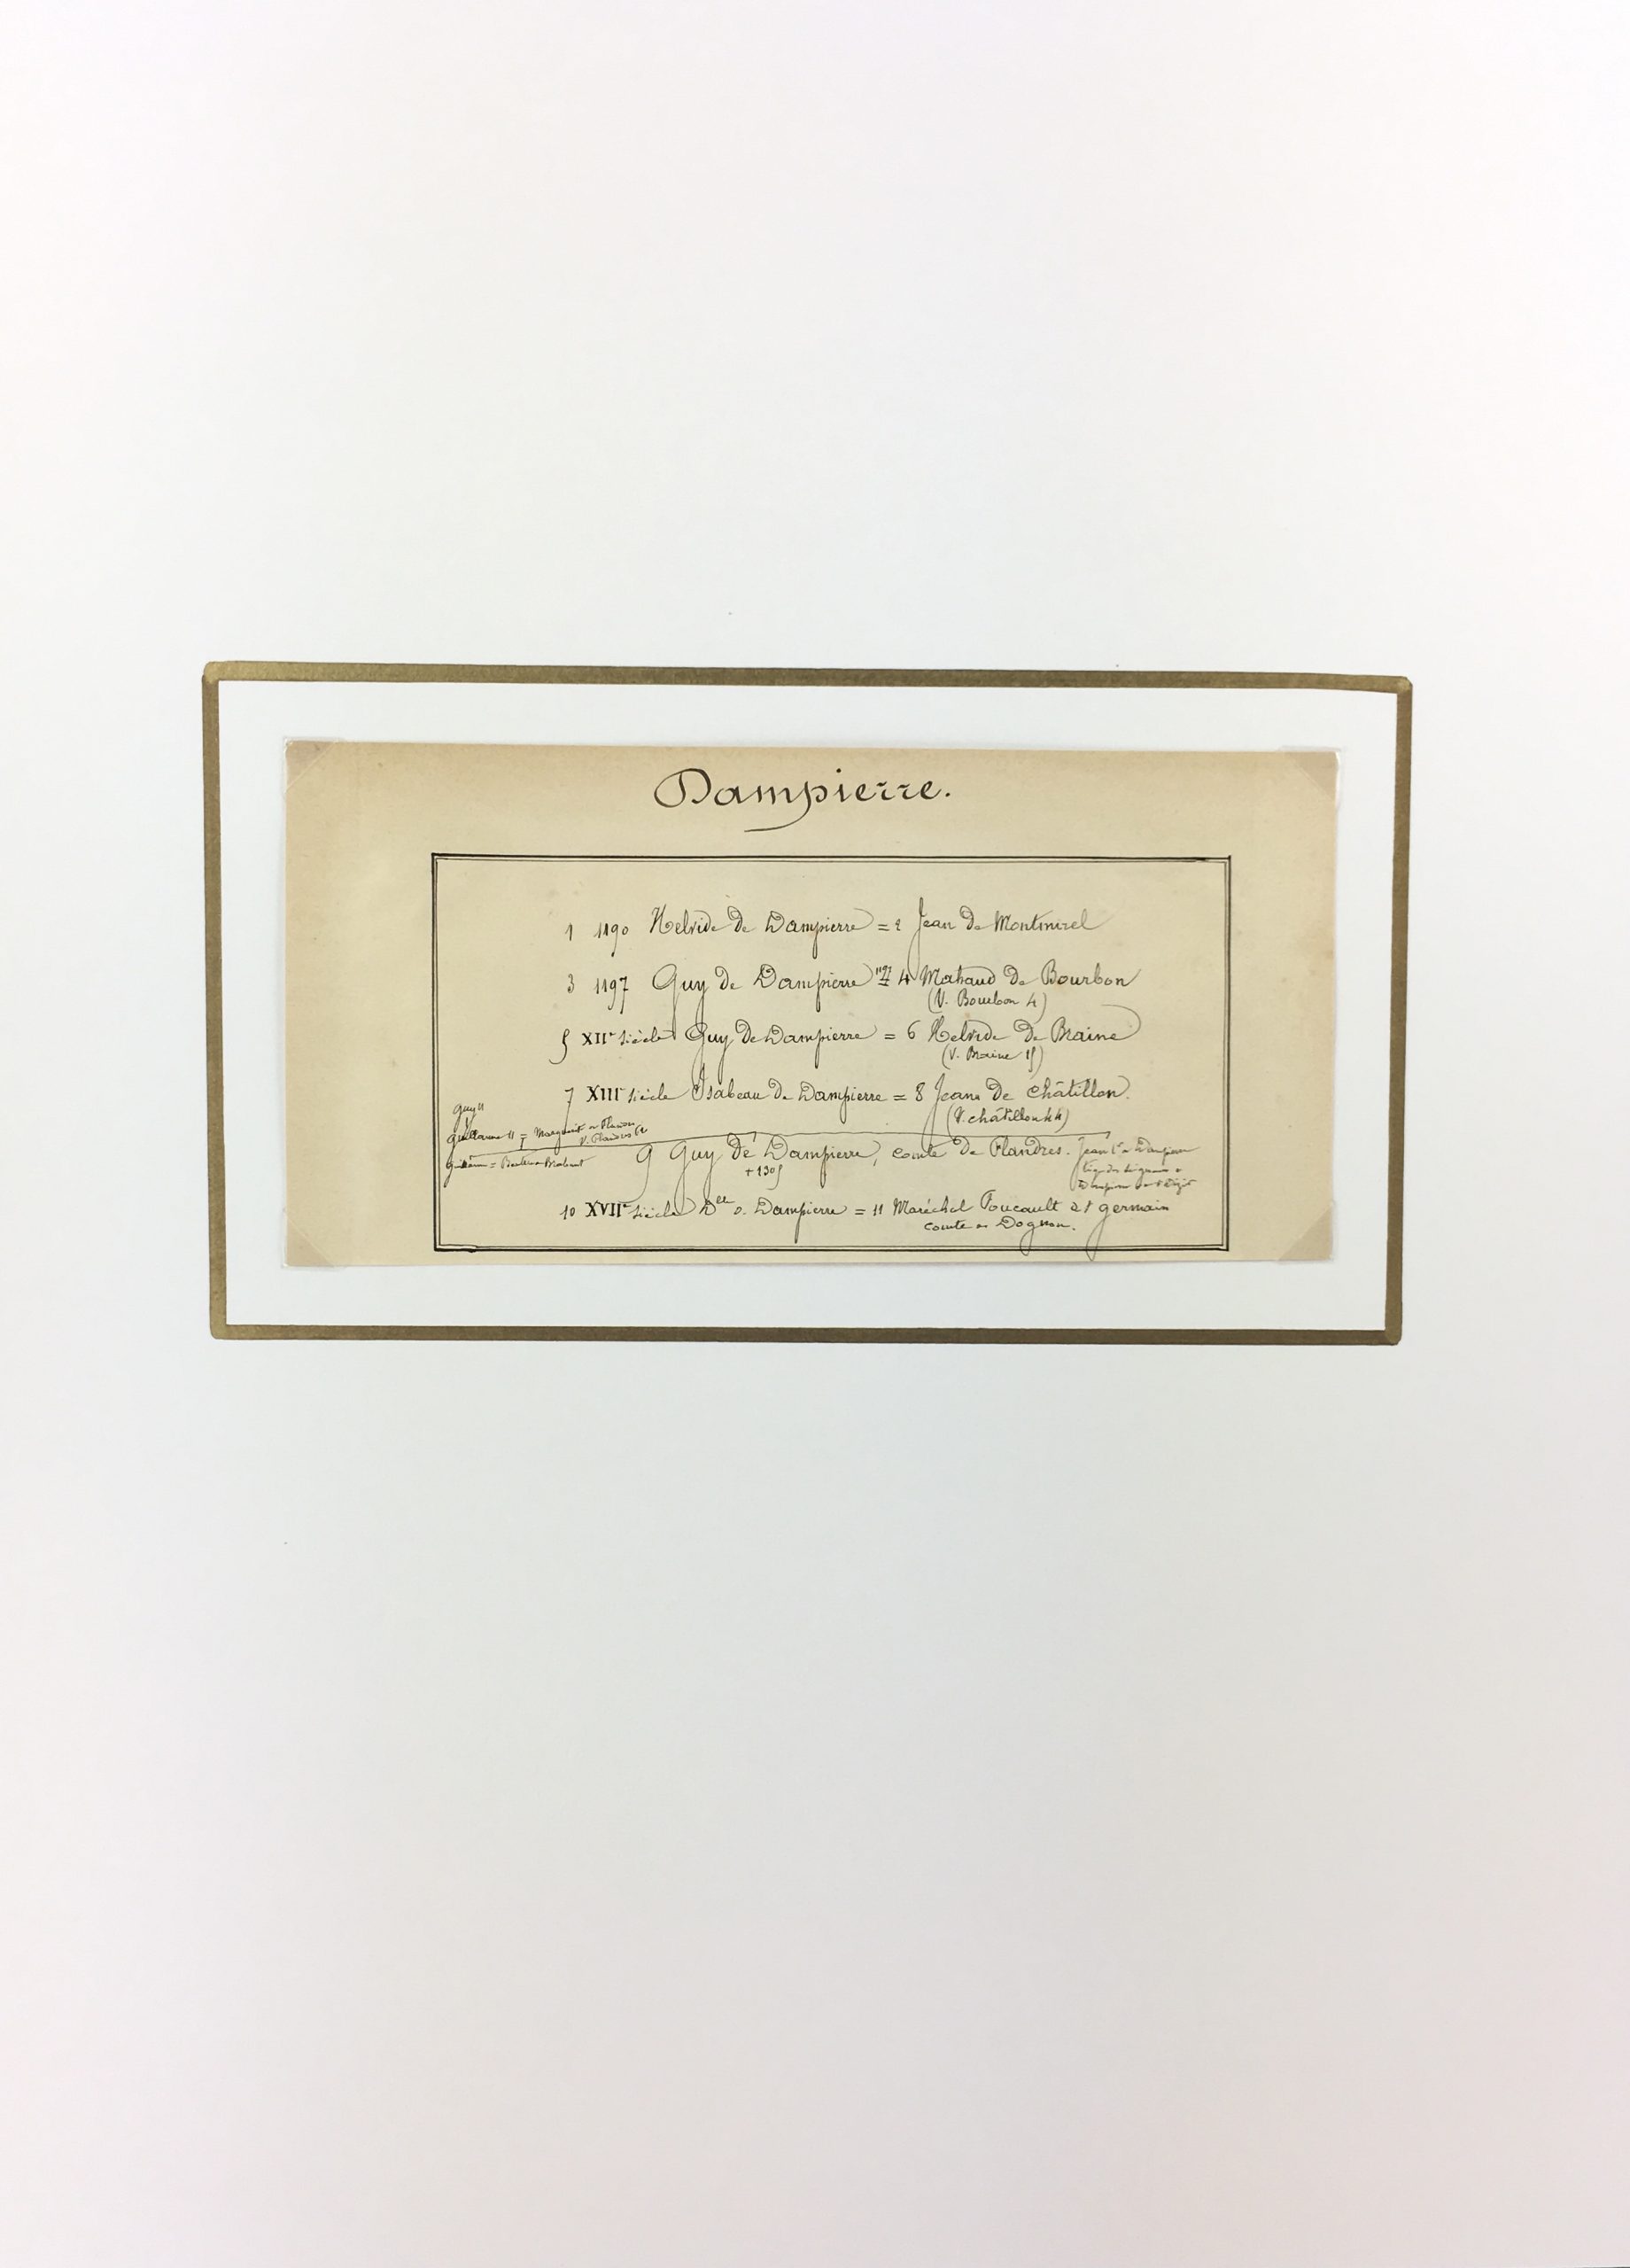 Dampierre.
1 1190 Helvide de Dampierre = 2 Jean de Montmirel
3 1197 Guy de Dampierre II = 4 Mahaud de Bourbon
(V. Bourbon 4)
5 XIIe siècle Guy de Dampierre = 6 Helvide de Braine
(V. Braine 15)
7 XIIIe siècle Isabeau de Dampierre = 8 Jean de Châtillon.
(V. châtillon 44)
Guy II
Guillaume II = Marguerite de Flandres
V. Flandres
Guillaume = Béatrice Brabant
9 Guy de Dampierre, comte de Flandres.
+ 1305
Jean 1er de Dampierre
tige des seigneurs de
Dampierre de St Dizier
10 XVIIe siècle Delle de Dampierre = 11 Maréchal Foucault de St germain
comte de Dognon.